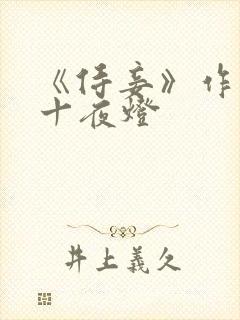 《侍妾》作
十夜燈
井上義久